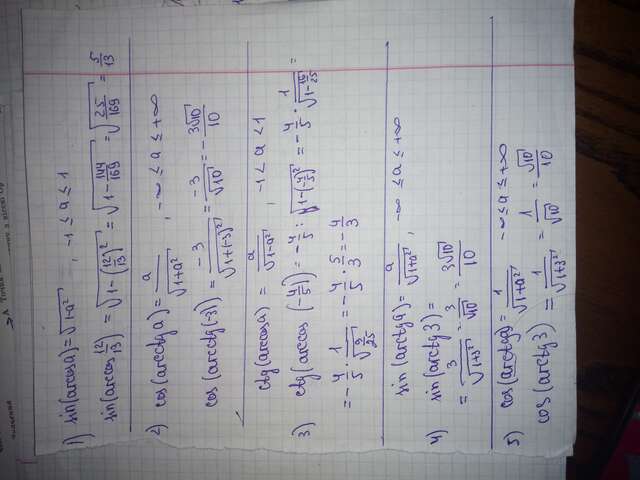 1) sin(arccos a) = √(1-a²) , -1 ≤ a ≤ 1
sin(arccos 12/13) = √(1-(12/13)²) = √(1-144/169) = √(25/169) = 5/13
2) cos(arcctg a) = a/√(1+a²) , -∞ ≤ a ≤ +∞
cos(arcctg(-3)) = -3/√(1+(-3)²) = -3/√10 = -3√10/10
ctg(arccos a) = a/√(1-a²) , -1 < a < 1
3) ctg(arccos(-4/5)) = -4/5 : √(1-(-4/5)²) = -4/5 · 1/√(1-16/25) =
= -4/5 · 1/√(9/25) = -4/5 · 5/3 = -4/3
sin(arctg a) = a/√(1+a²) , -∞ ≤ a ≤ +∞
4) sin(arctg 3) =
= 3/√(1+3²) = 3/√10 = 3√10/10
5) cos(arctg a) = 1/√(1+a²) -∞ ≤ a ≤ +∞
cos(arctg 3) = 1/√(1+3²) = 1/√10 = √10/10